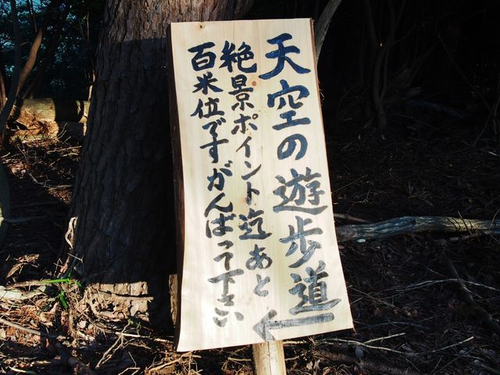 天空の遊歩道
絶景ポイント迄あと
百米位ですがんばって下さい